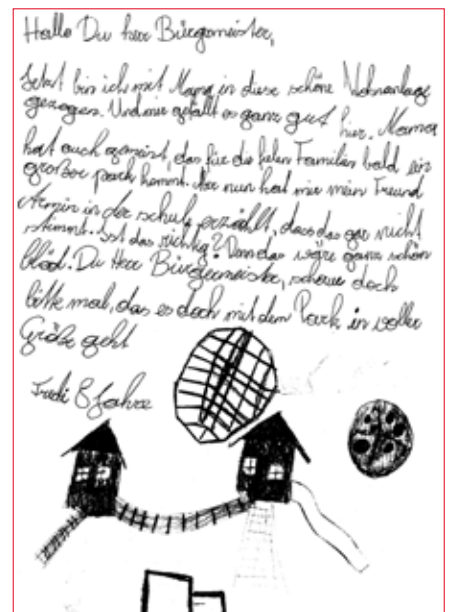 Hallo Du herr Bürgemeister,
Jetzt bin ich mit Mama in diese schöne Wohnanlage
gezogen. Und mir gefällt es ganz gut hier. Mama
hat auch gemeint, das für die filen Familien bald ein
großer park kommt. Aber nun hat mir mein Freund
Armin in der schule erzählt, dass das gar nicht
stimmt. Ist das richtig? Denn das wäre ganz schön
blöd. Du Herr Bürgemeister, schaue doch
bitte mal, das es doch mit dem Park in voller
Größe geht
Fredi 8 Jahre